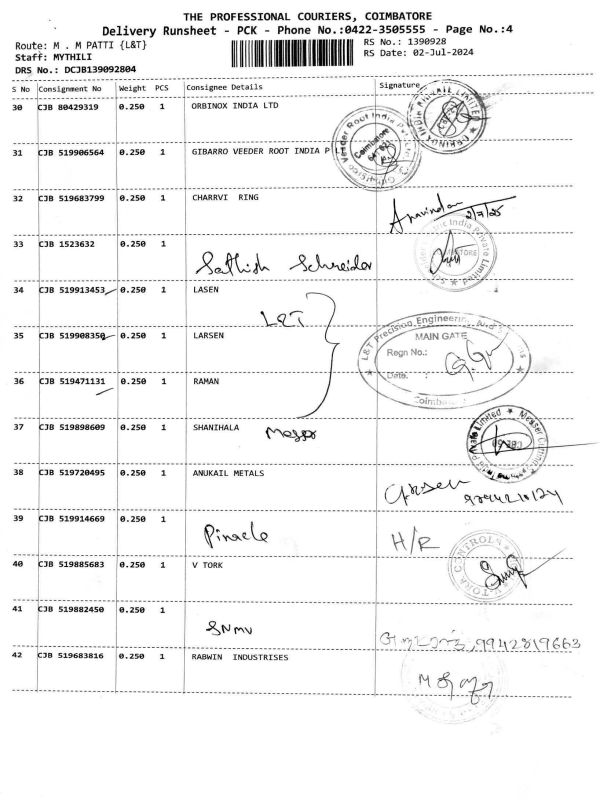 THE PROFESSIONAL COURIERS, COIMBATORE
Delivery Runsheet - PCK - Phone No.:0422-3505555 - Page No.:4
Route: M . M PATTI {L&T}
RS No.: 1390928
Staff: MYTHILI
RS Date: 02-Jul-2024
DRS No.: DCJB139092804
S No Consignment No Weight PCS Consignee Details Signature
30 CJB 80429319 0.250 1 ORBINOX INDIA LTD
31 CJB 519906564 0.250 1 GIBARRO VEEDER ROOT INDIA P LT
Veeder Root India
Coimbatore
32 CJB 519683799 0.250 1 CHARRVI RING
Aravindan
2/7/25
33 CJB 1523632 0.250 1
Sathish Schneider
India Private Limited
34 CJB 519913453 0.250 1 LASEN
L&T
35 CJB 519908350 0.250 1 LARSEN
L&T Precision Engineering And
MAIN GATE
Regn No.:
Date. :
36 CJB 519471131 0.250 1 RAMAN
37 CJB 519898609 0.250 1 SHANIHALA
Messer
Private Limited ★ Messer
38 CJB 519720495 0.250 1 ANUKAIL METALS
39 CJB 519914669 0.250 1
Pinacle
H/R
40 CJB 519885683 0.250 1 V TORK
CONTROLS
41 CJB 519882450 0.250 1
SNMV
9942819663
42 CJB 519683816 0.250 1 RABWIN INDUSTRISES